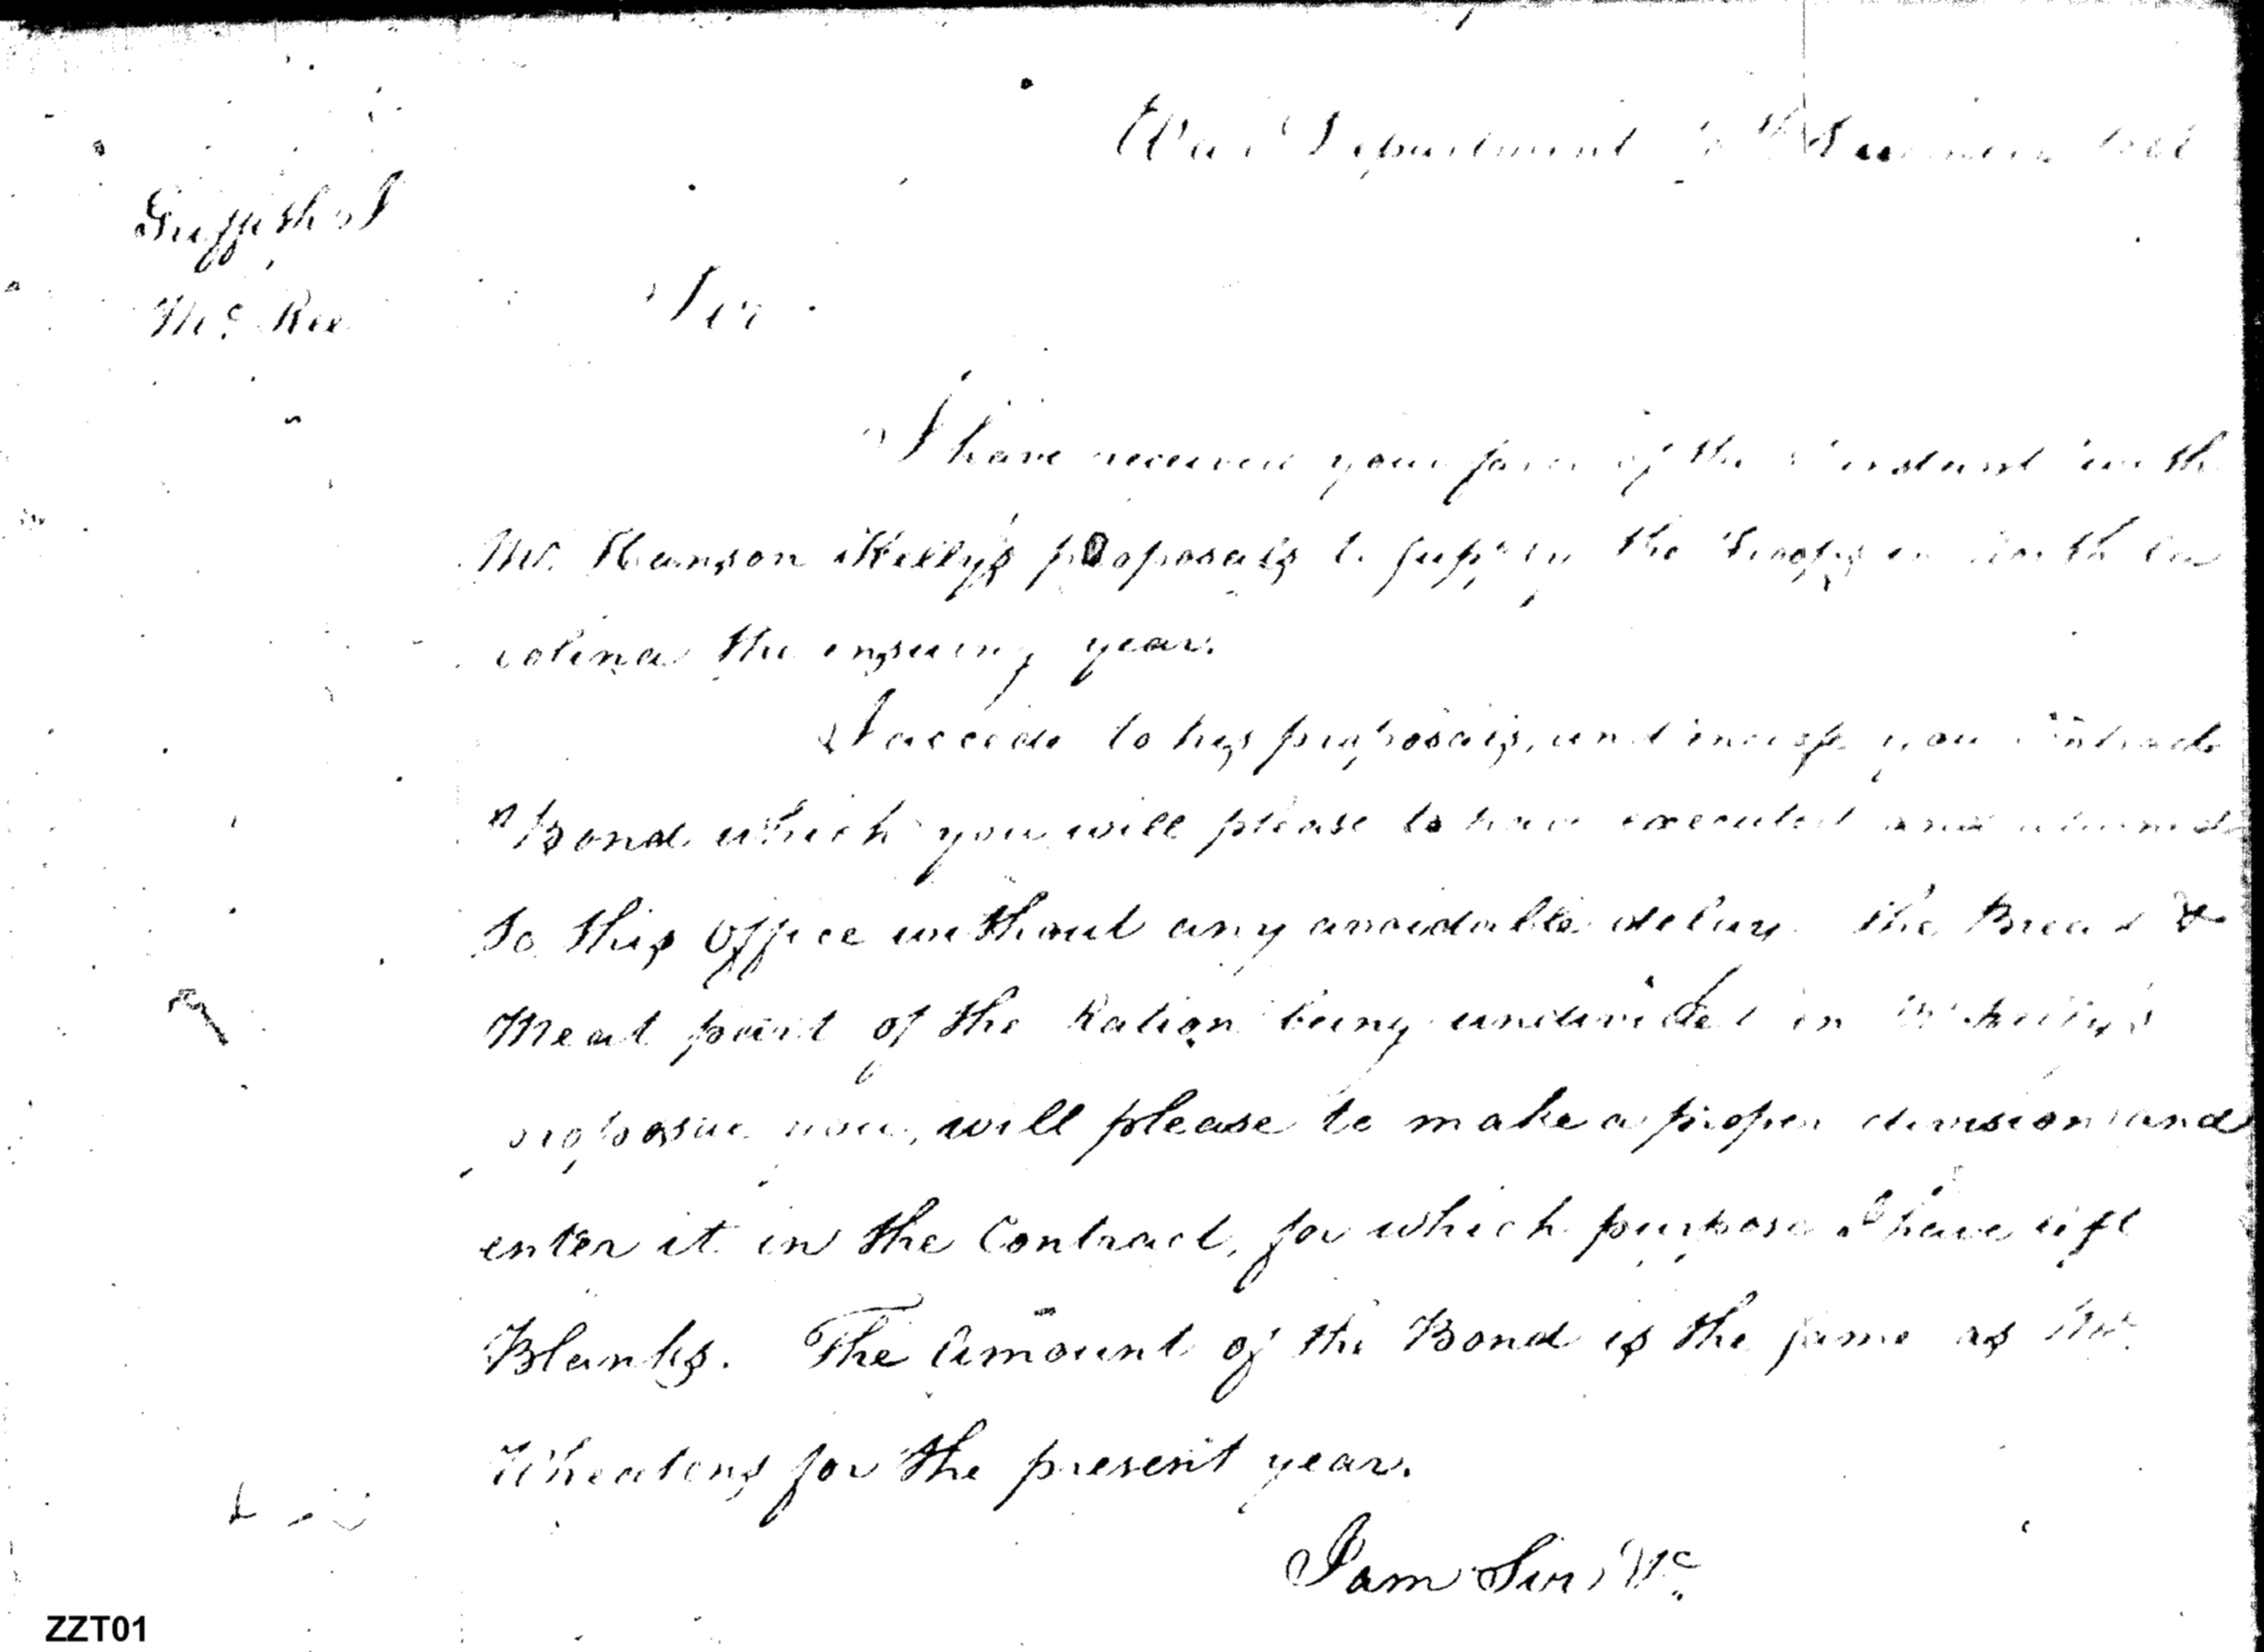 War Department
Griffith J
McRee
Sir
I have received your favor of the instant with
Mr. Hanson Kelly's proposals to supply the troops in North Ca
rolina the ensuing year.
I accede to his proposals, and inclose you Contracts
& Bond which you will please to have executed and returned
to this Office without any avoidable delay. The Bread &
Meat part of the Ration being undivided in Mr Kelly's
proposal you will please to make a proper division and
enter it in the Contract, for which purpose I have left
Blanks. The Amount of the Bond is the same as Mr.
Wheatons for the present year.
I am Sir &c
ZZT01